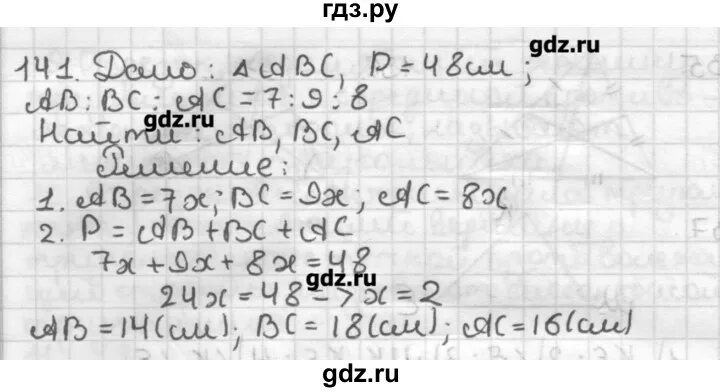 гдз.ру
141. Дано: △ABC, P=48см;
gdz.ru
AB:BC:AC=7:9:8
gdz.ru
Найти: AB, BC, AC
Решение:
1. AB=7x; BC=9x; AC=8x
gdz.ru
2. P=AB+BC+AC
7x+9x+8x=48
gdz.ru
24x=48->x=2
AB=14(см); BC=18(см); AC=16(см)
gdz.ru